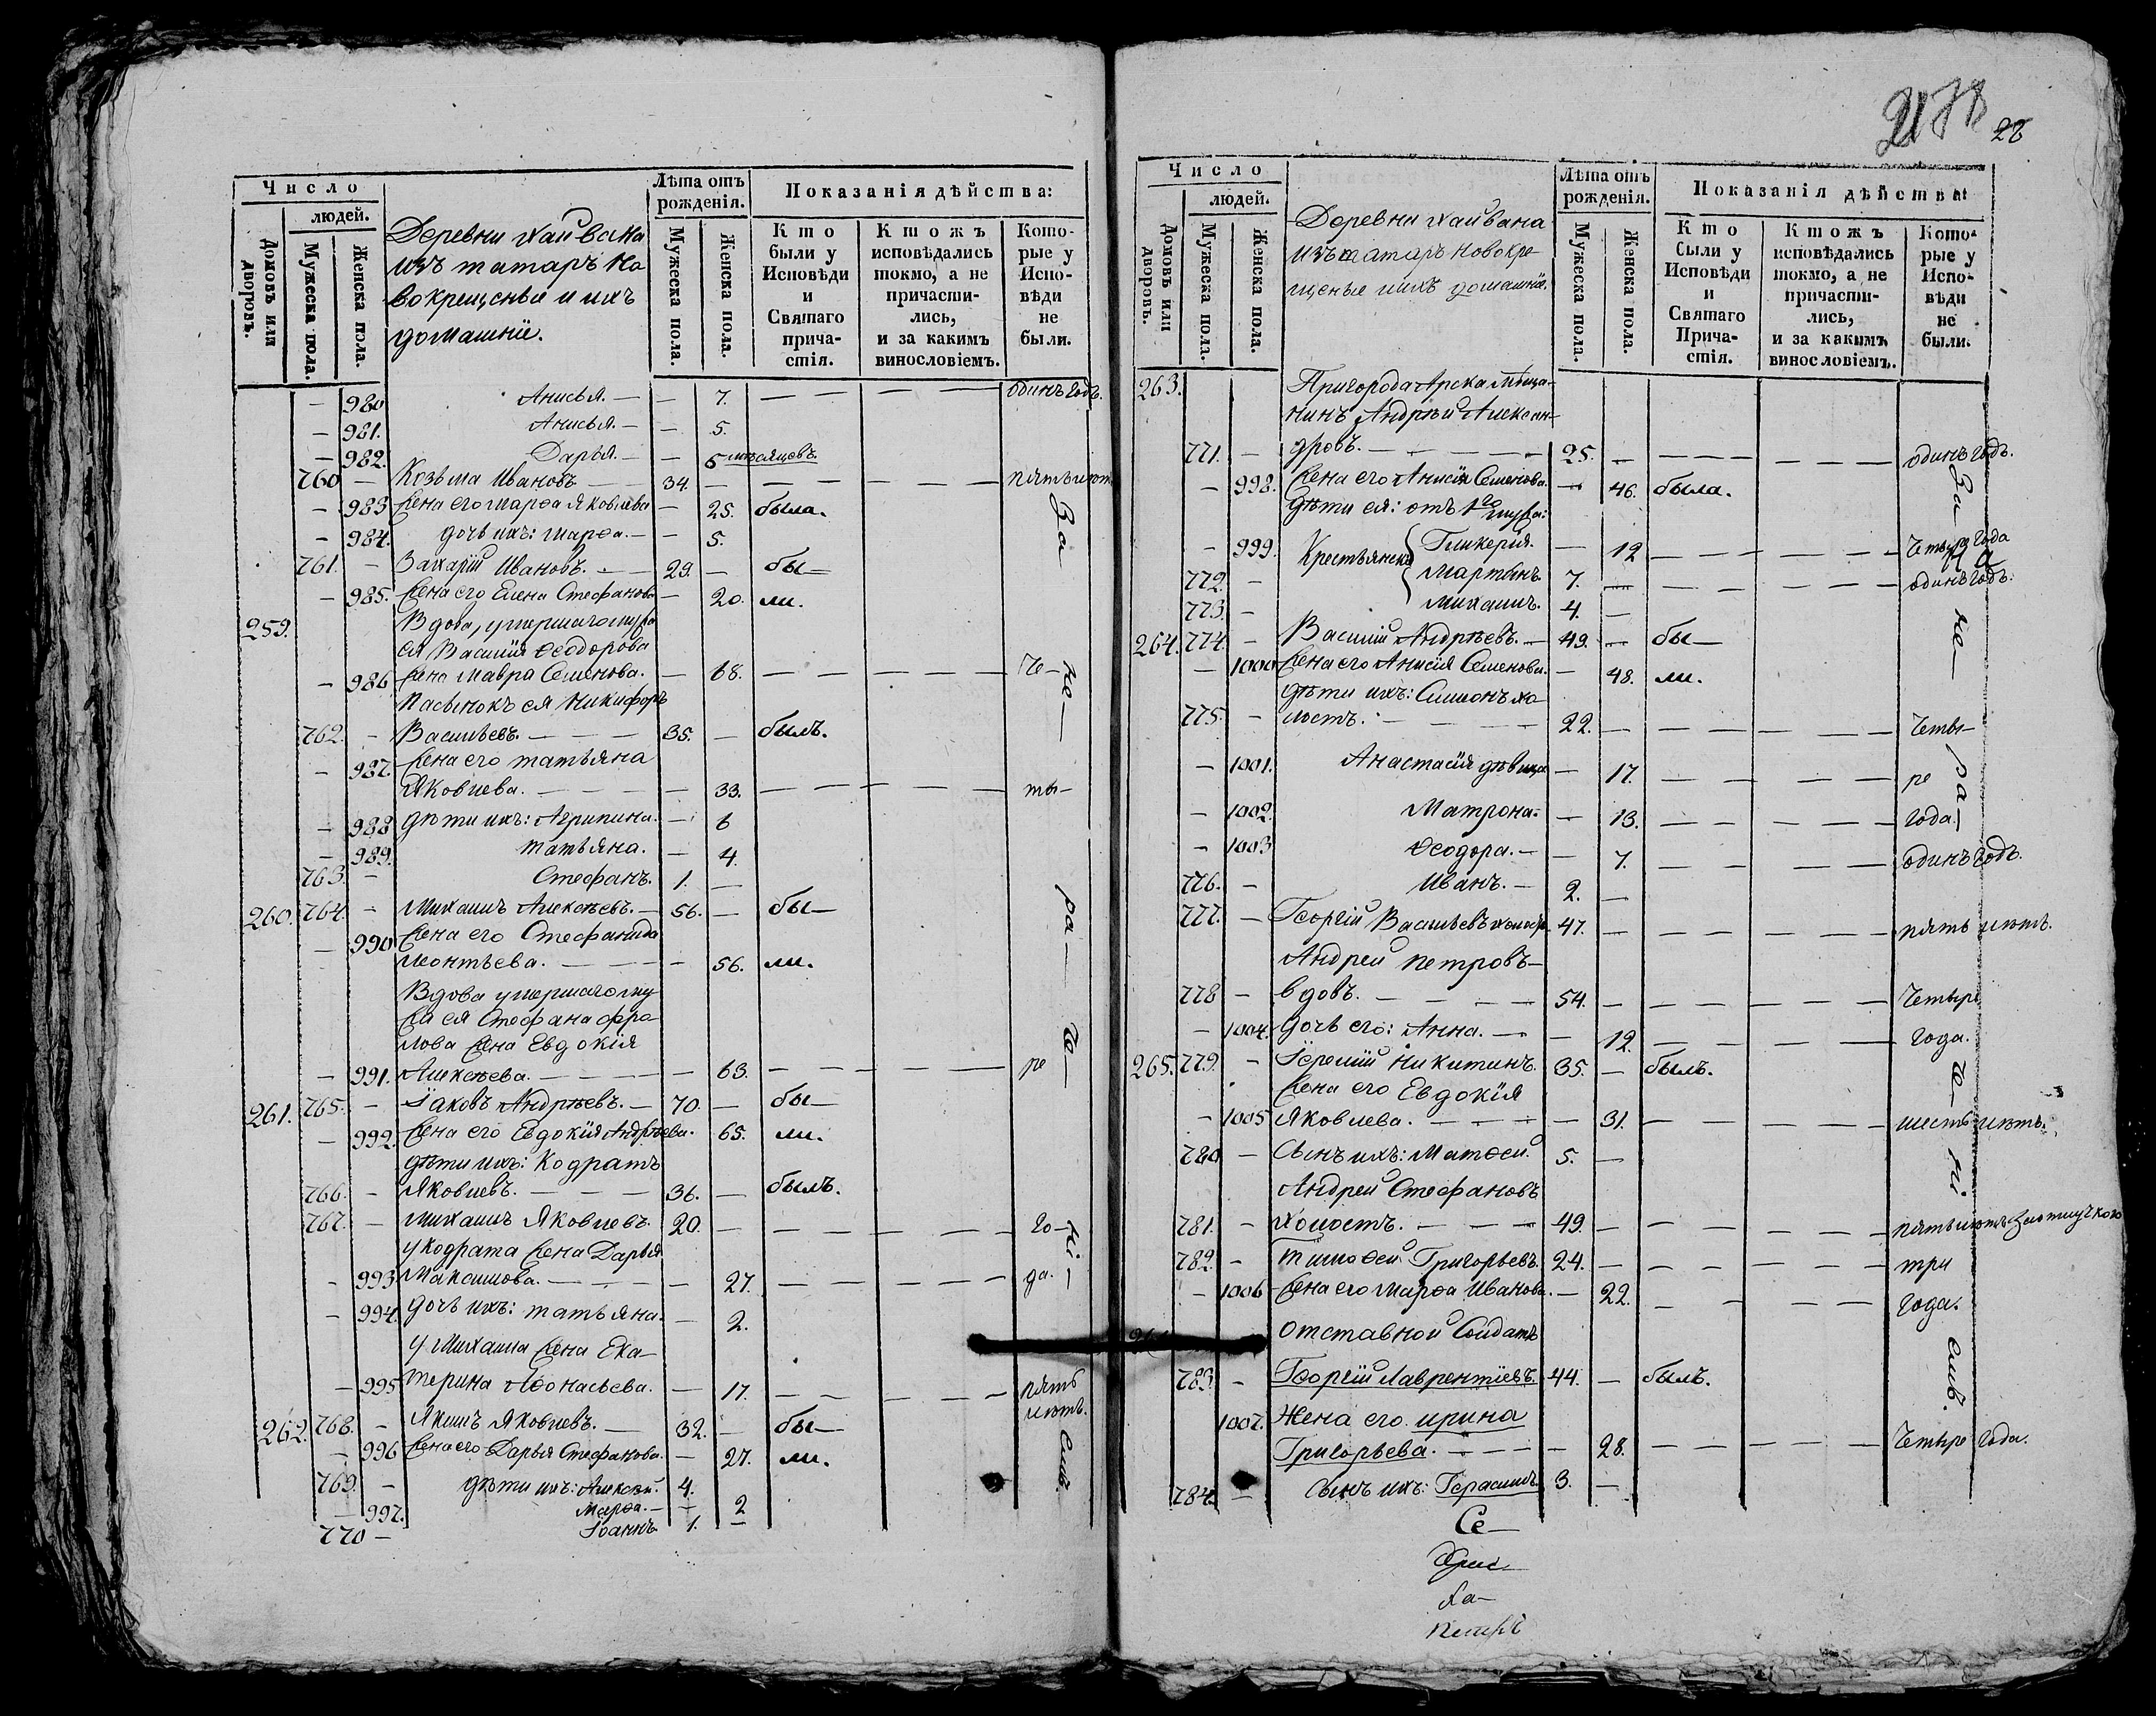 Число
людей.
Домовъ или дворовъ.
Мужеска пола.
Женска пола.
Деревни Хайвана
изъ татаръ но
вокрещеные и ихъ
домашніе.
Лѣта отъ рожденія.
Мужеска пола.
Женска пола.
Показанія дѣйства:
Кто были у Исповѣди и Святаго причастія.
Ктожъ исповѣдались токмо, а не причастились, и за какимъ винословіемъ.
Которые у Исповѣди не были.
— 980 Анисья. — — 7. — — — — одинъ годъ.
— 981. Анисья. — — 5.
— 982. Дарья. — — 5 мѣсяцевъ.
760 — Козьма Ивановъ — — 34. — — — — — пять лѣтъ
— 983 Жена его Марѳа Яковлева — 25. была.
— 984. дочь ихъ: Марѳа. — — 5.
761. — Захарій Ивановъ. — — 29. — бы—
— 985. Жена его Елена Стефанова — 20. ли.
259. Вдова, умершаго мужа
ея Василія Ѳеодорова
— 986. жена Мавра Семенова. — 68. — — — — че—
Пасынокъ ея Никифоръ
762. — Васильевъ. — — — 35. — былъ.
— 987. Жена его Татьяна
Яковлева. — — — — 33. — — — — ты—
— 988 дѣти ихъ: Агрипина. — 6
— 989. Татьяна. — 4.
763. — Стефанъ. 1. —
260. 764. — Михаилъ Алексѣевъ. — 56. — бы—
— 990 Жена его Стефанида
Леонтьева. — — — — 56. ли.
Вдова умершаго му
жа ея Стефана Фро
лова жена Евдокія
— 991. Алексѣева. — — — — 63. — — — — ре
261. 765. — Іаковъ Андрѣевъ. — 70. — бы—
— 992. Жена его Евдокія Андрѣева. 65. ли.
дѣти ихъ: Кодратъ
766. — Яковлевъ. — — — 36. — былъ.
767. — Михаилъ Яковлевъ. 20. — — — — — го—
у Кодрата жена Дарья
— 993 Максимова. — — — — 27. — — — — да.
— 994. дочь ихъ: Татьяна. — 2.
у Михаила жена Ека—
— 995 терина Аѳонасьева. — 17. — — — — пять
лѣтъ.
262. 768. — Якимъ Яковлевъ. — 32. — бы—
— 996 Жена его Дарья Стефанова. — 27. ли.
769. — дѣти ихъ: Алексѣй. 4.
— 997. Марѳа. — — 2
770 — Іоаннъ. 1. —
За—
ка—
ра—
че—
ні—
емъ.
22
Число
людей.
Домовъ или дворовъ.
Мужеска пола.
Женска пола.
Деревни Хайвана
изъ татаръ новокре—
щеные и ихъ домашніе.
Лѣта отъ рожденія.
Мужеска пола.
Женска пола.
Показанія дѣйства:
Кто были у Исповѣди и Святаго Причастія.
Ктожъ исповѣдались токмо, а не причастились, и за какимъ винословіемъ.
Которые у Исповѣди не были.
263. Пригорода Арска мѣща—
нинъ Андрѣй Алексан—
771. — дровъ. — — — — — 25. — — — — — одинъ годъ.
— 998. Жена его Анисія Семенова. — 46. была.
дѣти ея: отъ 1го мужа:
— 999. Крестьянскія Гликерія. — 12 — — — — четыре года
772. — Мартынъ. 7. — — — — — одинъ годъ.
773. — Михаилъ. 4. —
264. 774. — Василій Андрѣевъ. — 49. — бы—
— 1000 Жена его Анисія Семенова. — 48. ли.
дѣти ихъ: Симіонъ хо—
775. — лостъ. — — — — 22. — — — — — четы—
— 1001. Анастасія дѣвица — 17. — — — — ре
— 1002. Матрона. — 13. — — — — года.
— 1003 Ѳеодора. — — 7. — — — — одинъ годъ.
776. — Иванъ. — 2. —
777. — Георгій Васильевъ холост. 47. — — — — — пять лѣтъ.
Андрей Петровъ—
778 — вдовъ. — — — — 54. — — — — — четыре
— 1004. дочь его: Анна. — — 12. — — — — года.
265. 779. — Іеремій Никитинъ. 35. — былъ.
Жена его Евдокія
— 1005 Яковлева. — — — — 31. — — — — шесть лѣтъ.
780 — Сынъ ихъ: Матѳей. 5. —
Андрей Стефановъ
781. — холостъ. — — — 49. — — — — — пять лѣтъ
782. — Тимоѳей Григорьевъ. 24. — — — — — три
— 1006 Жена его Марѳа Иванова. — 22. — — — — года.
Отставной Солдатъ
783. — Георгій Лаврентіевъ. 44. — былъ.
1007. Жена его Ирина
Григорьева. — — — — 28. — — — — четыре года.
784. — Сынъ ихъ: Герасимъ. 3. —
За—
ка—
ра—
че—
ні—
емъ.
Се—
ха—